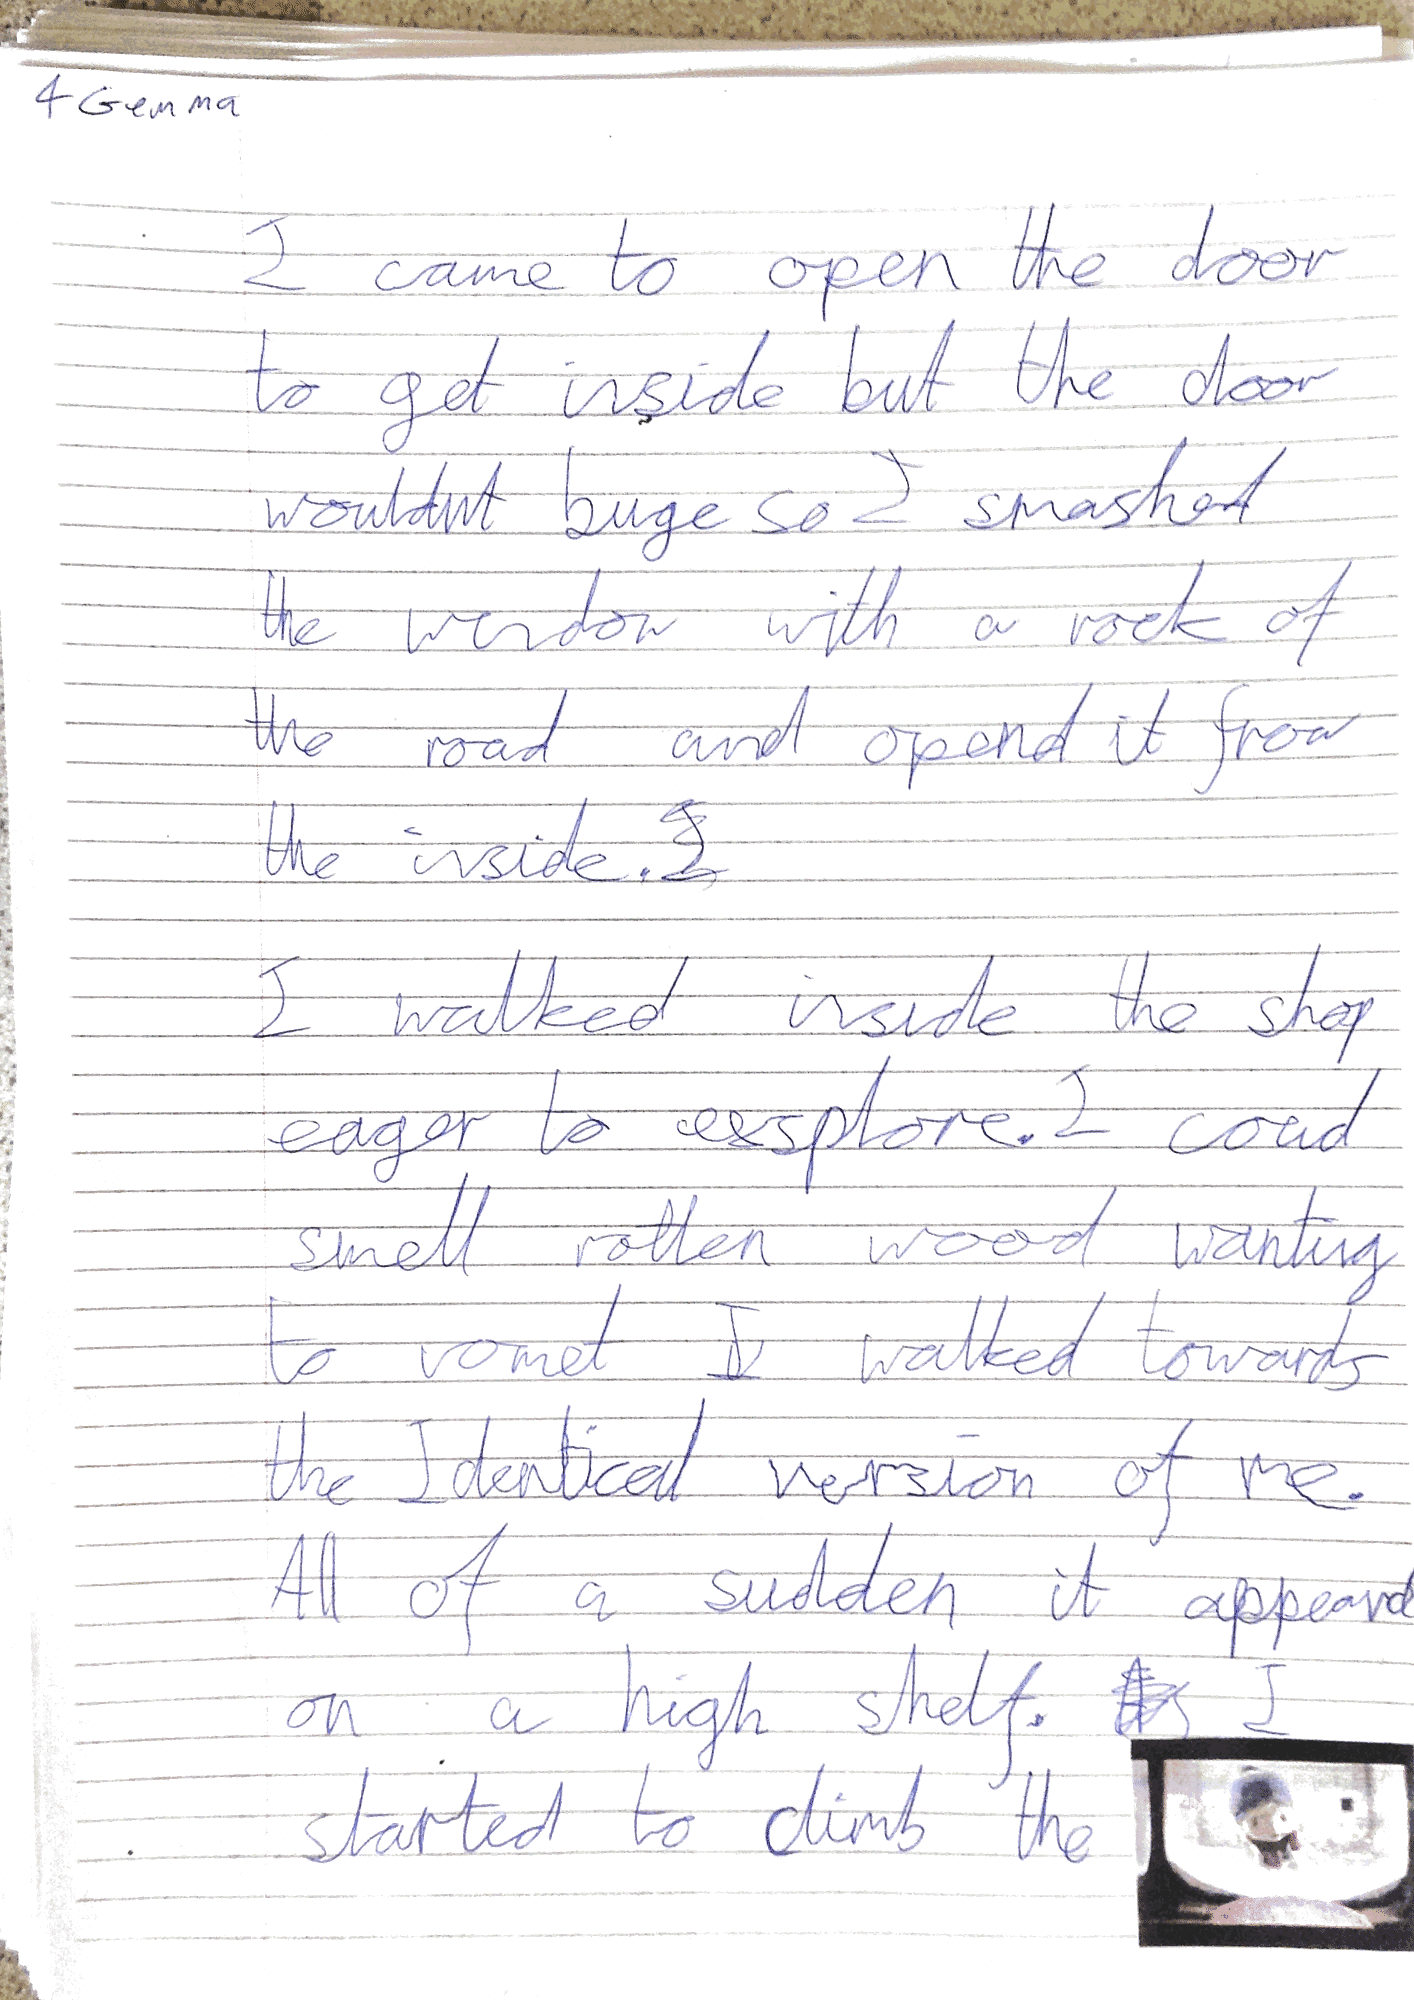 4 Gemma
I came to open the door
to get inside but the door
wouldnt buge so I smashed
the wendow with a rock of
the road and opend it from
the inside.
I walked inside the shop
eager to exsplore. I coud
smell rotten wood wanting
to vomet I walked towards
the Identical version of me.
All of a sudden it appeard
on a high shelf. I
started to climb the